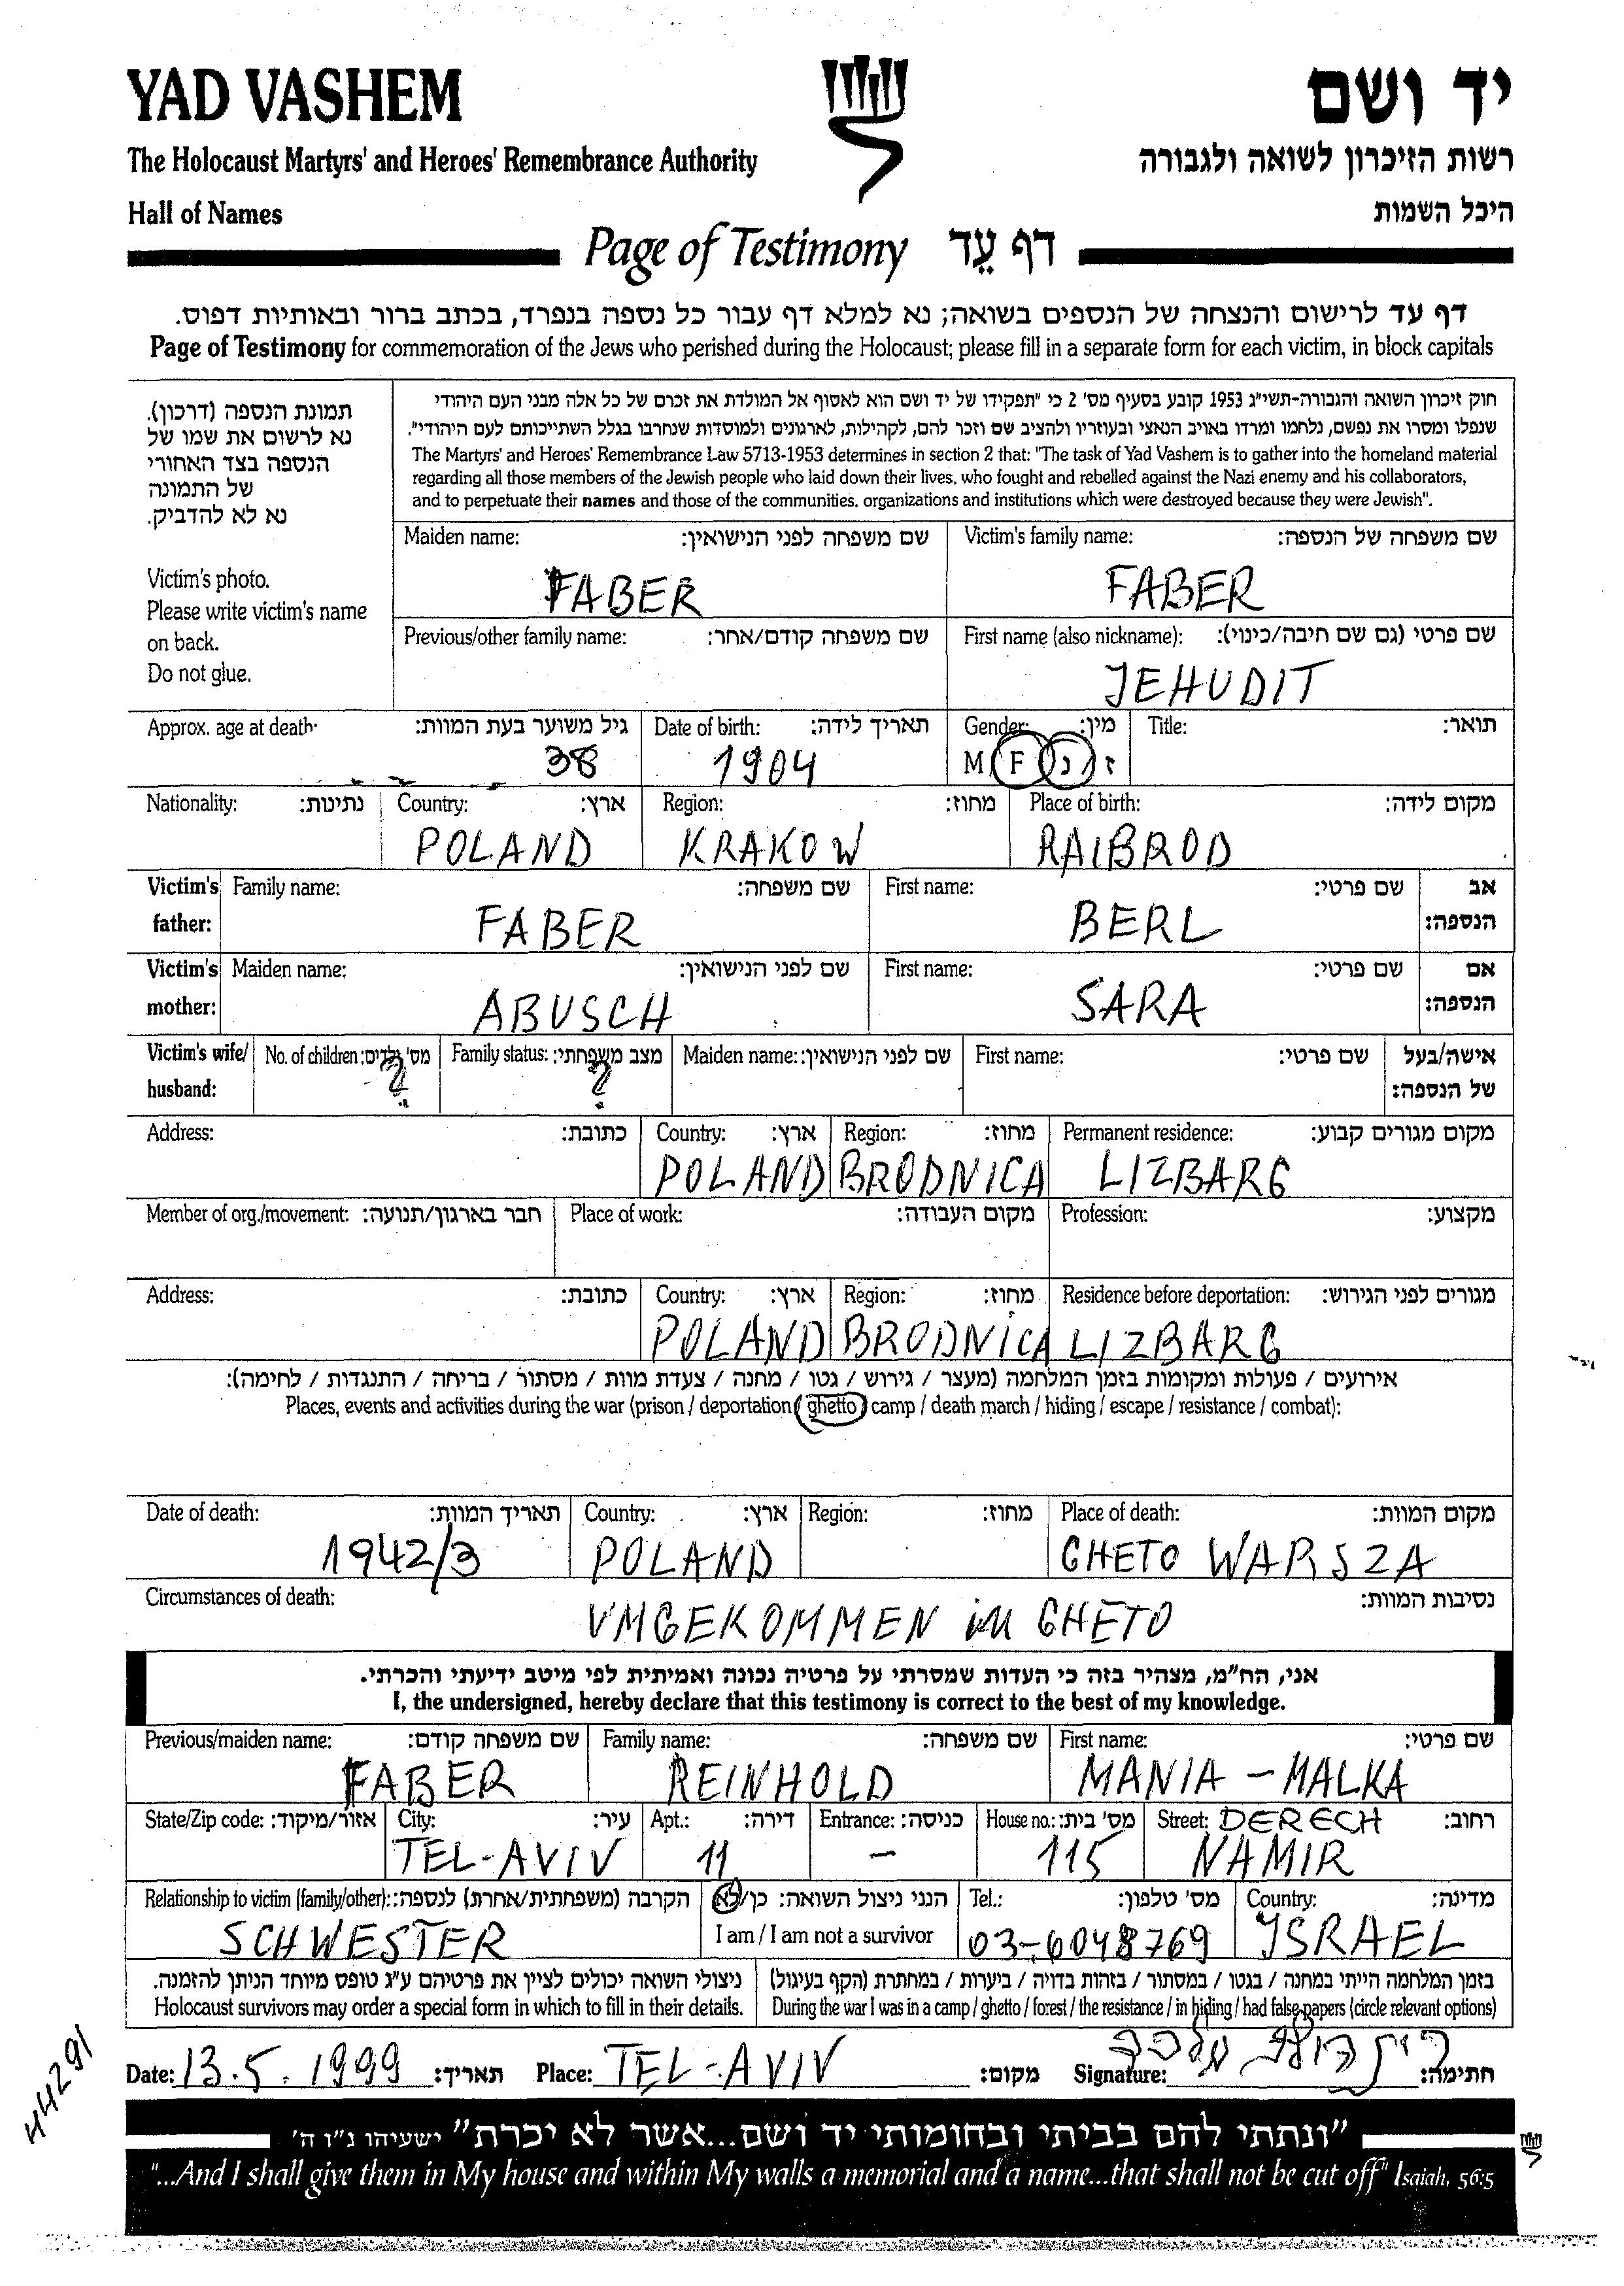 YAD VASHEM
יד ושם
The Holocaust Martyrs' and Heroes' Remembrance Authority
רשות הזיכרון לשואה ולגבורה
Hall of Names
היכל השמות
Page of Testimony דף עֵד
דף עד לרישום והנצחה של הנספים בשואה; נא למלא דף עבור כל נספה בנפרד, בכתב ברור ובאותיות דפוס.
Page of Testimony for commemoration of the Jews who perished during the Holocaust; please fill in a separate form for each victim, in block capitals
תמונת הנספה (דרכון).
נא לרשום את שמו של
הנספה בצד האחורי
של התמונה
נא לא להדביק.
Victim's photo.
Please write victim's name
on back.
Do not glue.
חוק זיכרון השואה והגבורה-תשי״ג 1953 קובע בסעיף מס' 2 כי "תפקידו של יד ושם הוא לאסוף אל המולדת את זכרם של כל אלה מבני העם היהודי
שנפלו ומסרו את נפשם, נלחמו ומרדו באויב הנאצי ובעוזריו ולהציב שם וזכר להם, לקהילות, לארגונים ולמוסדות שנחרבו בגלל השתייכותם לעם היהודי".
The Martyrs' and Heroes' Remembrance Law 5713-1953 determines in section 2 that: "The task of Yad Vashem is to gather into the homeland material
regarding all those members of the Jewish people who laid down their lives, who fought and rebelled against the Nazi enemy and his collaborators,
and to perpetuate their names and those of the communities, organizations and institutions which were destroyed because they were Jewish".
Maiden name: שם משפחה לפני הנישואין:
FABER
Victim's family name: שם משפחה של הנספה:
FABER
Previous/other family name: שם משפחה קודם/אחר:
First name (also nickname): שם פרטי (גם שם חיבה/כינוי):
JEHUDIT
Approx. age at death: גיל משוער בעת המוות:
38
Date of birth: תאריך לידה:
1904
Gender: מין:
M / F נ / ז
Title: תואר:
Nationality: נתינות:
Country: ארץ:
POLAND
Region: מחוז:
KRAKOW
Place of birth: מקום לידה:
RAIBROD
Victim's father: Family name: שם משפחה:
FABER
First name: שם פרטי: אב הנספה:
BERL
Victim's mother: Maiden name: שם לפני הנישואין:
ABUSCH
First name: שם פרטי: אם הנספה:
SARA
Victim's wife/ husband: No. of children: מס' ילדים:
?
Family status: מצב משפחתי:
?
Maiden name: שם לפני הנישואין:
First name: שם פרטי: אישה/בעל של הנספה:
Address: כתובת:
Country: ארץ:
POLAND
Region: מחוז:
BRODNICA
Permanent residence: מקום מגורים קבוע:
LIZBARG
Member of org./movement: חבר בארגון/תנועה:
Place of work: מקום העבודה:
Profession: מקצוע:
Address: כתובת:
Country: ארץ:
POLAND
Region: מחוז:
BRODNICA
Residence before deportation: מגורים לפני הגירוש:
LIZBARG
אירועים / פעולות ומקומות בזמן המלחמה (מעצר / גירוש / גטו / מחנה / צעדת מוות / מסתור / בריחה / התנגדות / לחימה):
Places, events and activities during the war (prison / deportation / ghetto / camp / death march / hiding / escape / resistance / combat):
Date of death: תאריך המוות:
1942/3
Country: ארץ:
POLAND
Region: מחוז:
Place of death: מקום המוות:
GHETO WARSZA
Circumstances of death: נסיבות המוות:
UMGEKOMMEN im GHETO
אני, הח״מ, מצהיר בזה כי העדות שמסרתי על פרטיה נכונה ואמיתית לפי מיטב ידיעתי והכרתי.
I, the undersigned, hereby declare that this testimony is correct to the best of my knowledge.
Previous/maiden name: שם משפחה קודם:
FABER
Family name: שם משפחה:
REINHOLD
First name: שם פרטי:
MANIA - MALKA
State/Zip code: אזור/מיקוד:
City: עיר:
TEL-AVIV
Apt.: דירה:
11
Entrance: כניסה:
–
House no.: מס' בית:
115
Street: רחוב:
DERECH
NAMIR
Relationship to victim (family/other): הקרבה (משפחתית/אחרת) לנספה:
SCHWESTER
הנני ניצול השואה: כן/לא
I am / I am not a survivor
Tel.: מס' טלפון:
03-6048769
Country: מדינה:
ISRAEL
ניצולי השואה יכולים לציין את פרטיהם ע״ג טופס מיוחד הניתן להזמנה.
Holocaust survivors may order a special form in which to fill in their details.
בזמן המלחמה הייתי במחנה / בגטו / במסתור / בזהות בדויה / ביערות / במחתרת (הקף בעיגול)
During the war I was in a camp / ghetto / forest / the resistance / in hiding / had false papers (circle relevant options)
Date: 13.5.1999 תאריך: Place: TEL-AVIV מקום: Signature: ריינהולד מלכה חתימה:
44291
"ונתתי להם בביתי ובחומותי יד ושם...אשר לא יכרת" ישעיהו נ״ו ה'
"...And I shall give them in My house and within My walls a memorial and a name...that shall not be cut off" Isaiah, 56:5